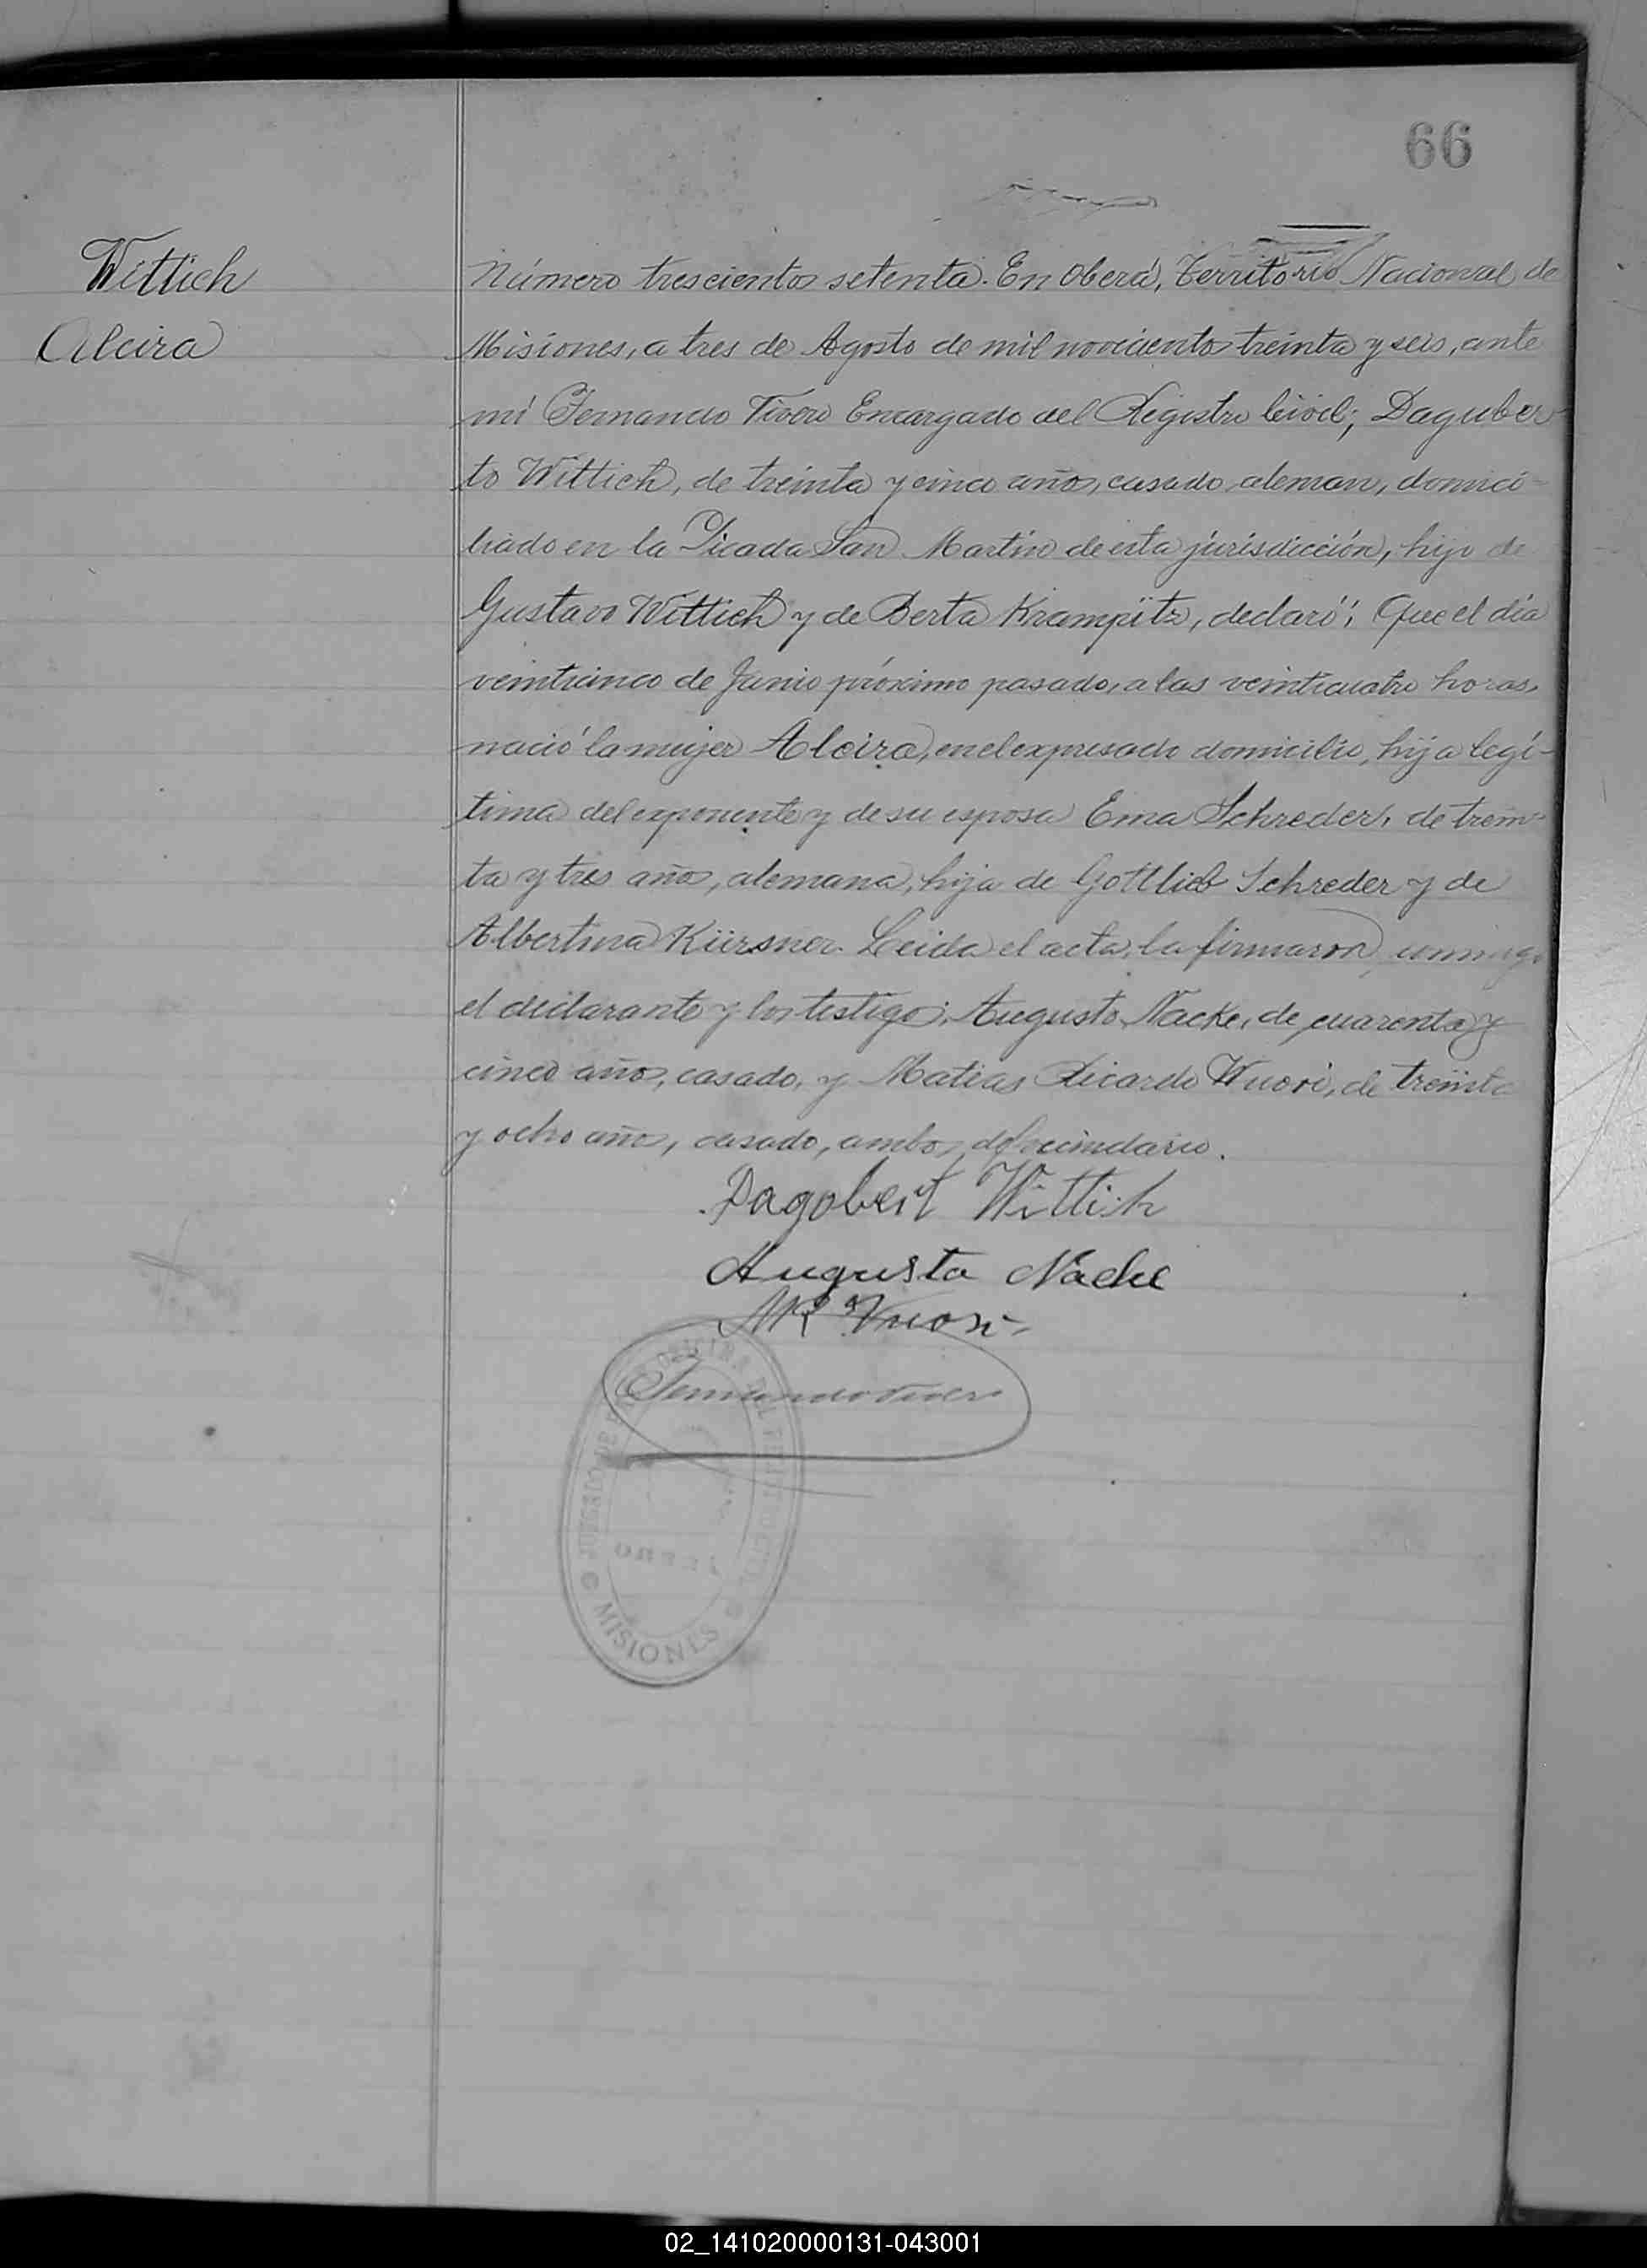 66
Wittich
Alcira
Número trescientos setenta. En Oberá, Territorio Nacional de
Misiones, a tres de Agosto de mil novecientos treinta y seis, ante
mi Fernando Encargado del Registro Civil; Daguber-
to Wittich, de treinta y cinco años, casado, aleman, domici-
liado en la Picada San Martin de esta jurisdicción, hijo de
Gustavo Wittich y de Berta Krampitz, declaró: Que el día
veinticinco de Junio próximo pasado, a las veinticuatro horas,
nació la mujer Alcira, en el expresado domicilio, hija legí-
tima del exponente y de su esposa Ema Schreder, de trein-
ta y tres años, alemana, hija de Gottlieb Schreder y de
Albertina Kürsner. Leida el acta, la firmaron conmigo
el declarante y los testigos: Augusto Nacke, de cuarenta y
cinco años, casado, y Matias Ricardo Wuori, de treinta
y ocho años, casado, ambos del vecindario.
Dagobert Wittich
Augusta Nacke
MR Wuori
MISIONES
02_141020000131-043001